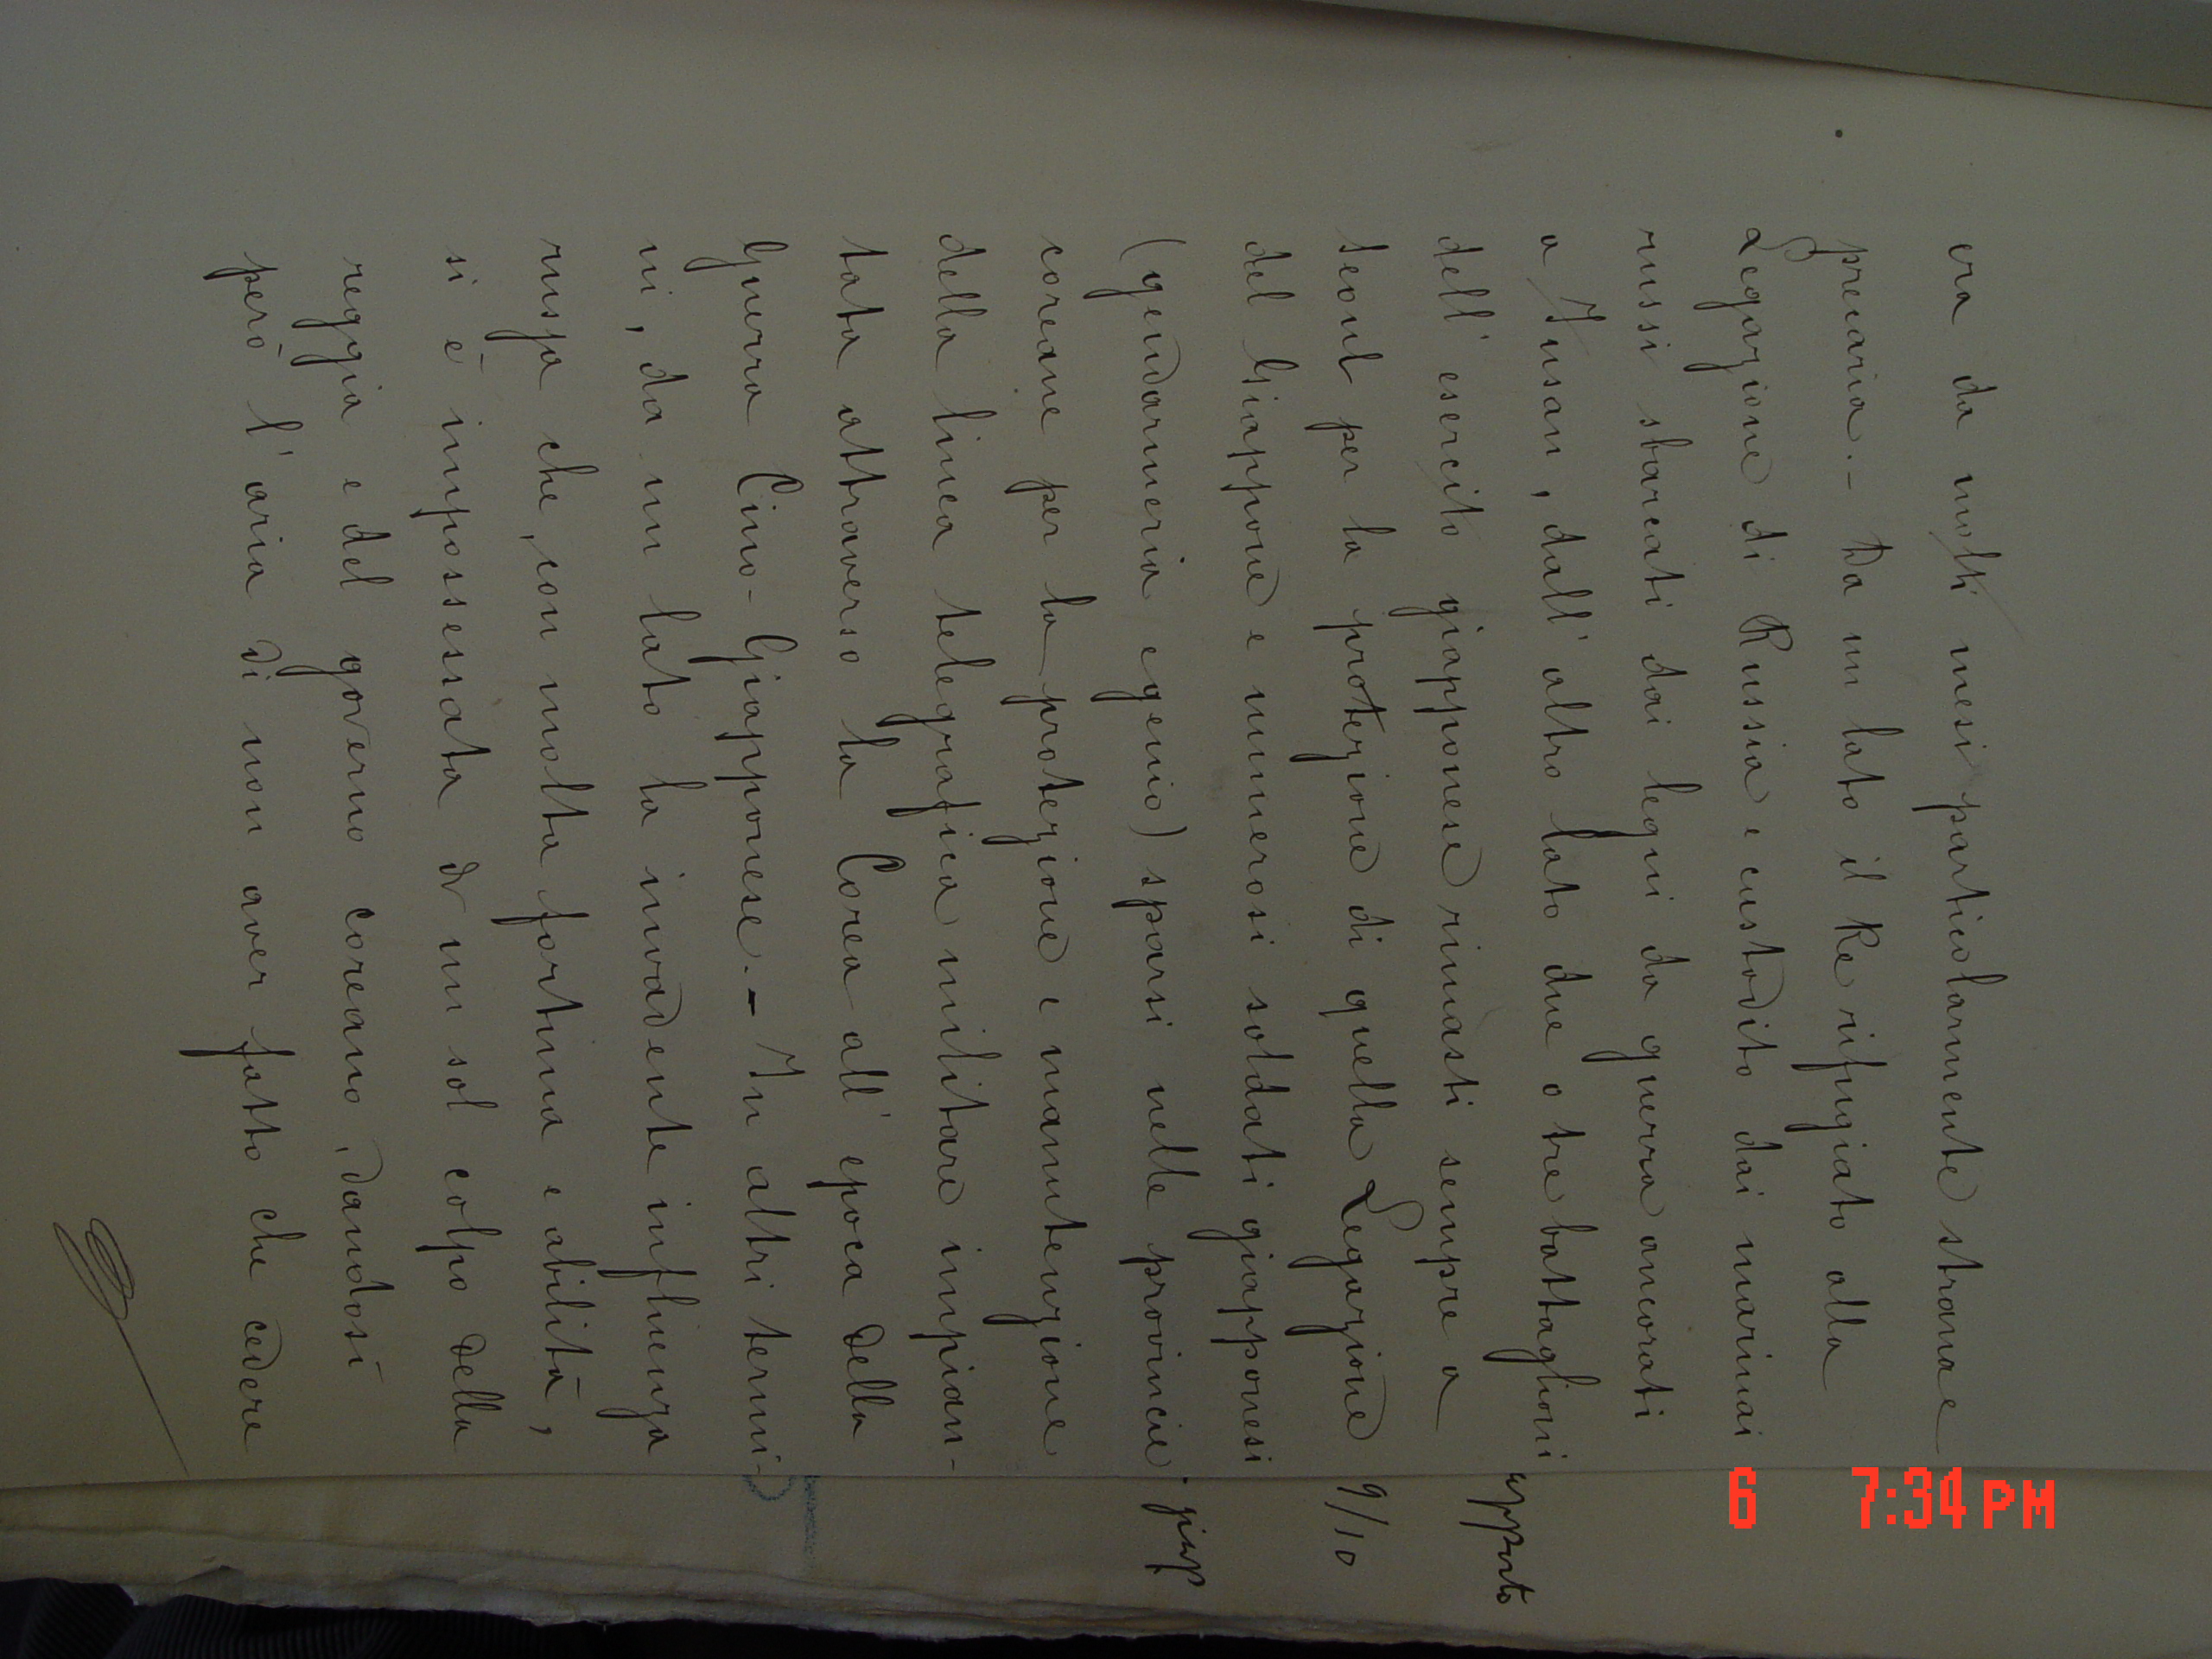 era da molti mesi particolarmente strana e
precaria. - Da un lato il Re rifugiato alla
Legazione di Russia e custodito dai marinai
russi sbarcati dai legni da guerra ancorati
a Fusan, dall'altro lato due o tre battaglioni
dell'esercito giapponese rimasti sempre a
Seoul per la protezione di quella Legazione
del Giappone e numerosi soldati giapponesi
(gendarmeria e genio) sparsi nelle provincie
coreane per la protezione e manutenzione
della linea telegrafica militare impian-
tata attraverso la Corea all'epoca della
Guerra Cino-Giapponese. - In altri termi-
ni, da un lato la invadente influenza
russa che, con molta fortuna e abilità,
si è impossessata di un sol colpo della
reggia e del governo coreano, dandosi
però l'aria di non aver fatto che cedere
9/10
giap
6 7:34 PM